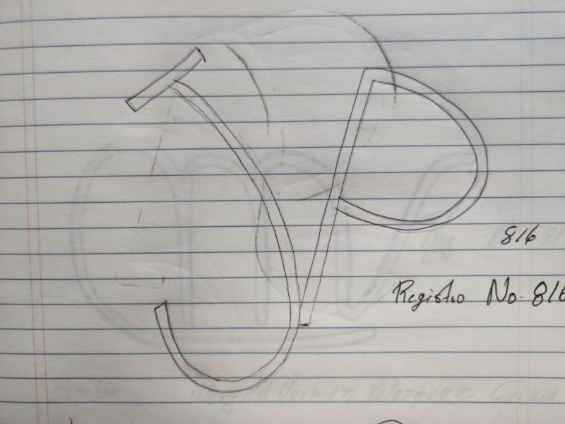 JP
816
Registro No. 816